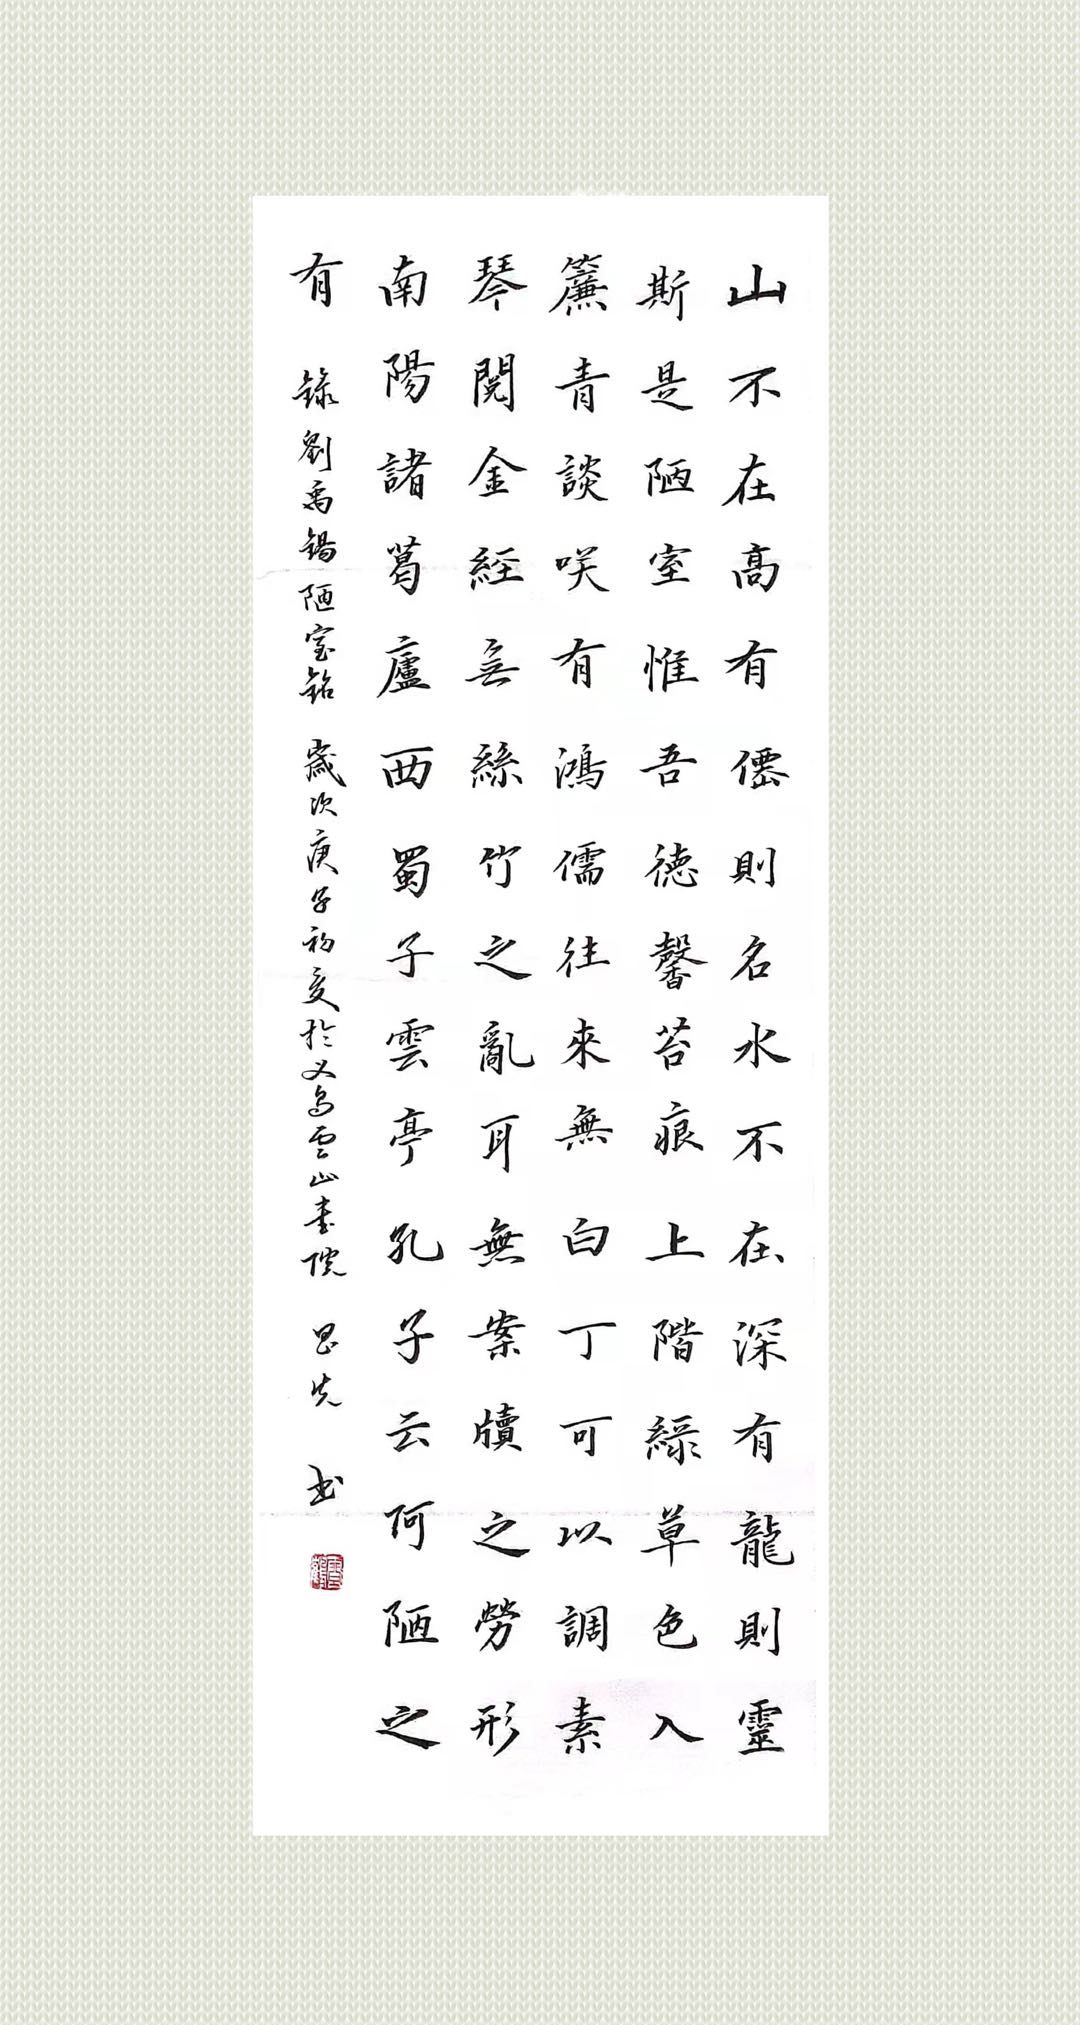 山不在高有僊則名水不在深有龍則靈
斯是陋室惟吾德馨苔痕上階綠草色入
簾青談咲有鴻儒往來無白丁可以調素
琴閱金經無絲竹之亂耳無案牘之勞形
南陽諸葛廬西蜀子雲亭孔子云何陋之
有
錄劉禹錫陋室銘 歲次庚子初夏於义烏雲山書院 思先 书